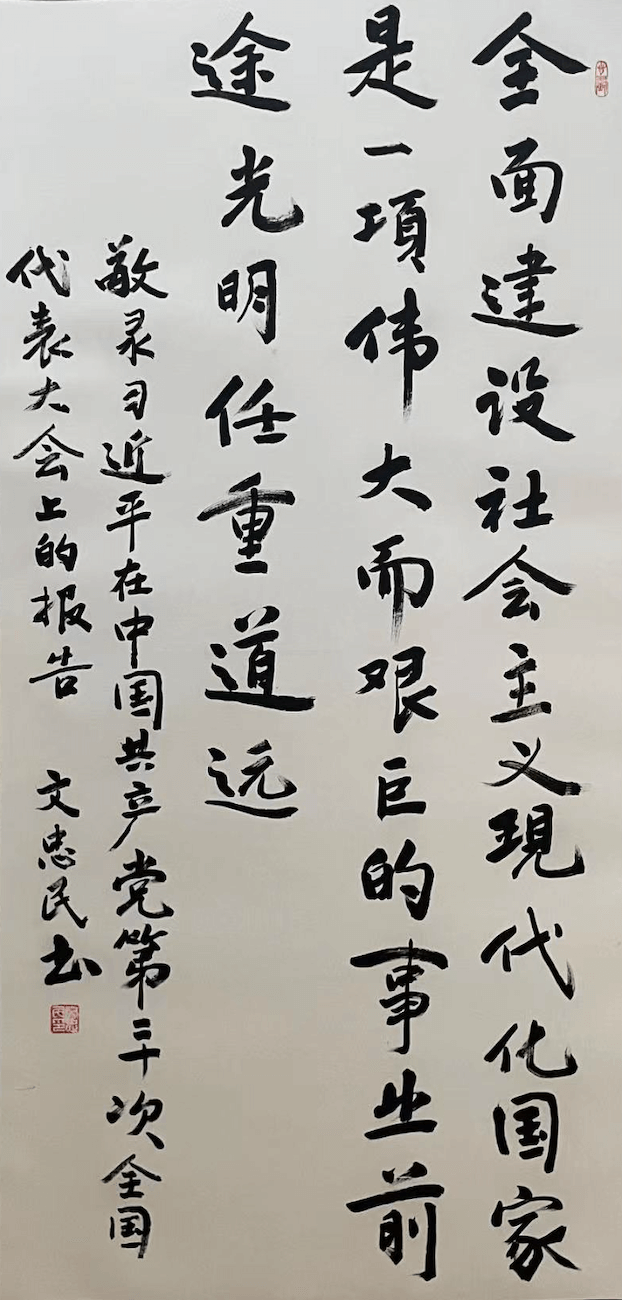 全面建设社会主义現代化国家
是一項伟大而艰巨的事业前
途光明任重道远
敬录习近平在中国共产党第二十次全国
代表大会上的报告 文忠民书